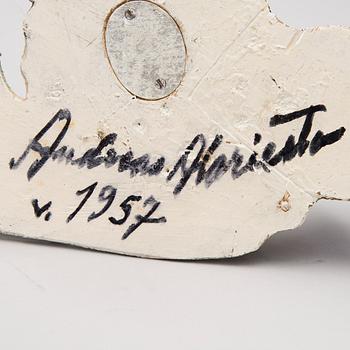 Andreas Alariesto
v. 1957